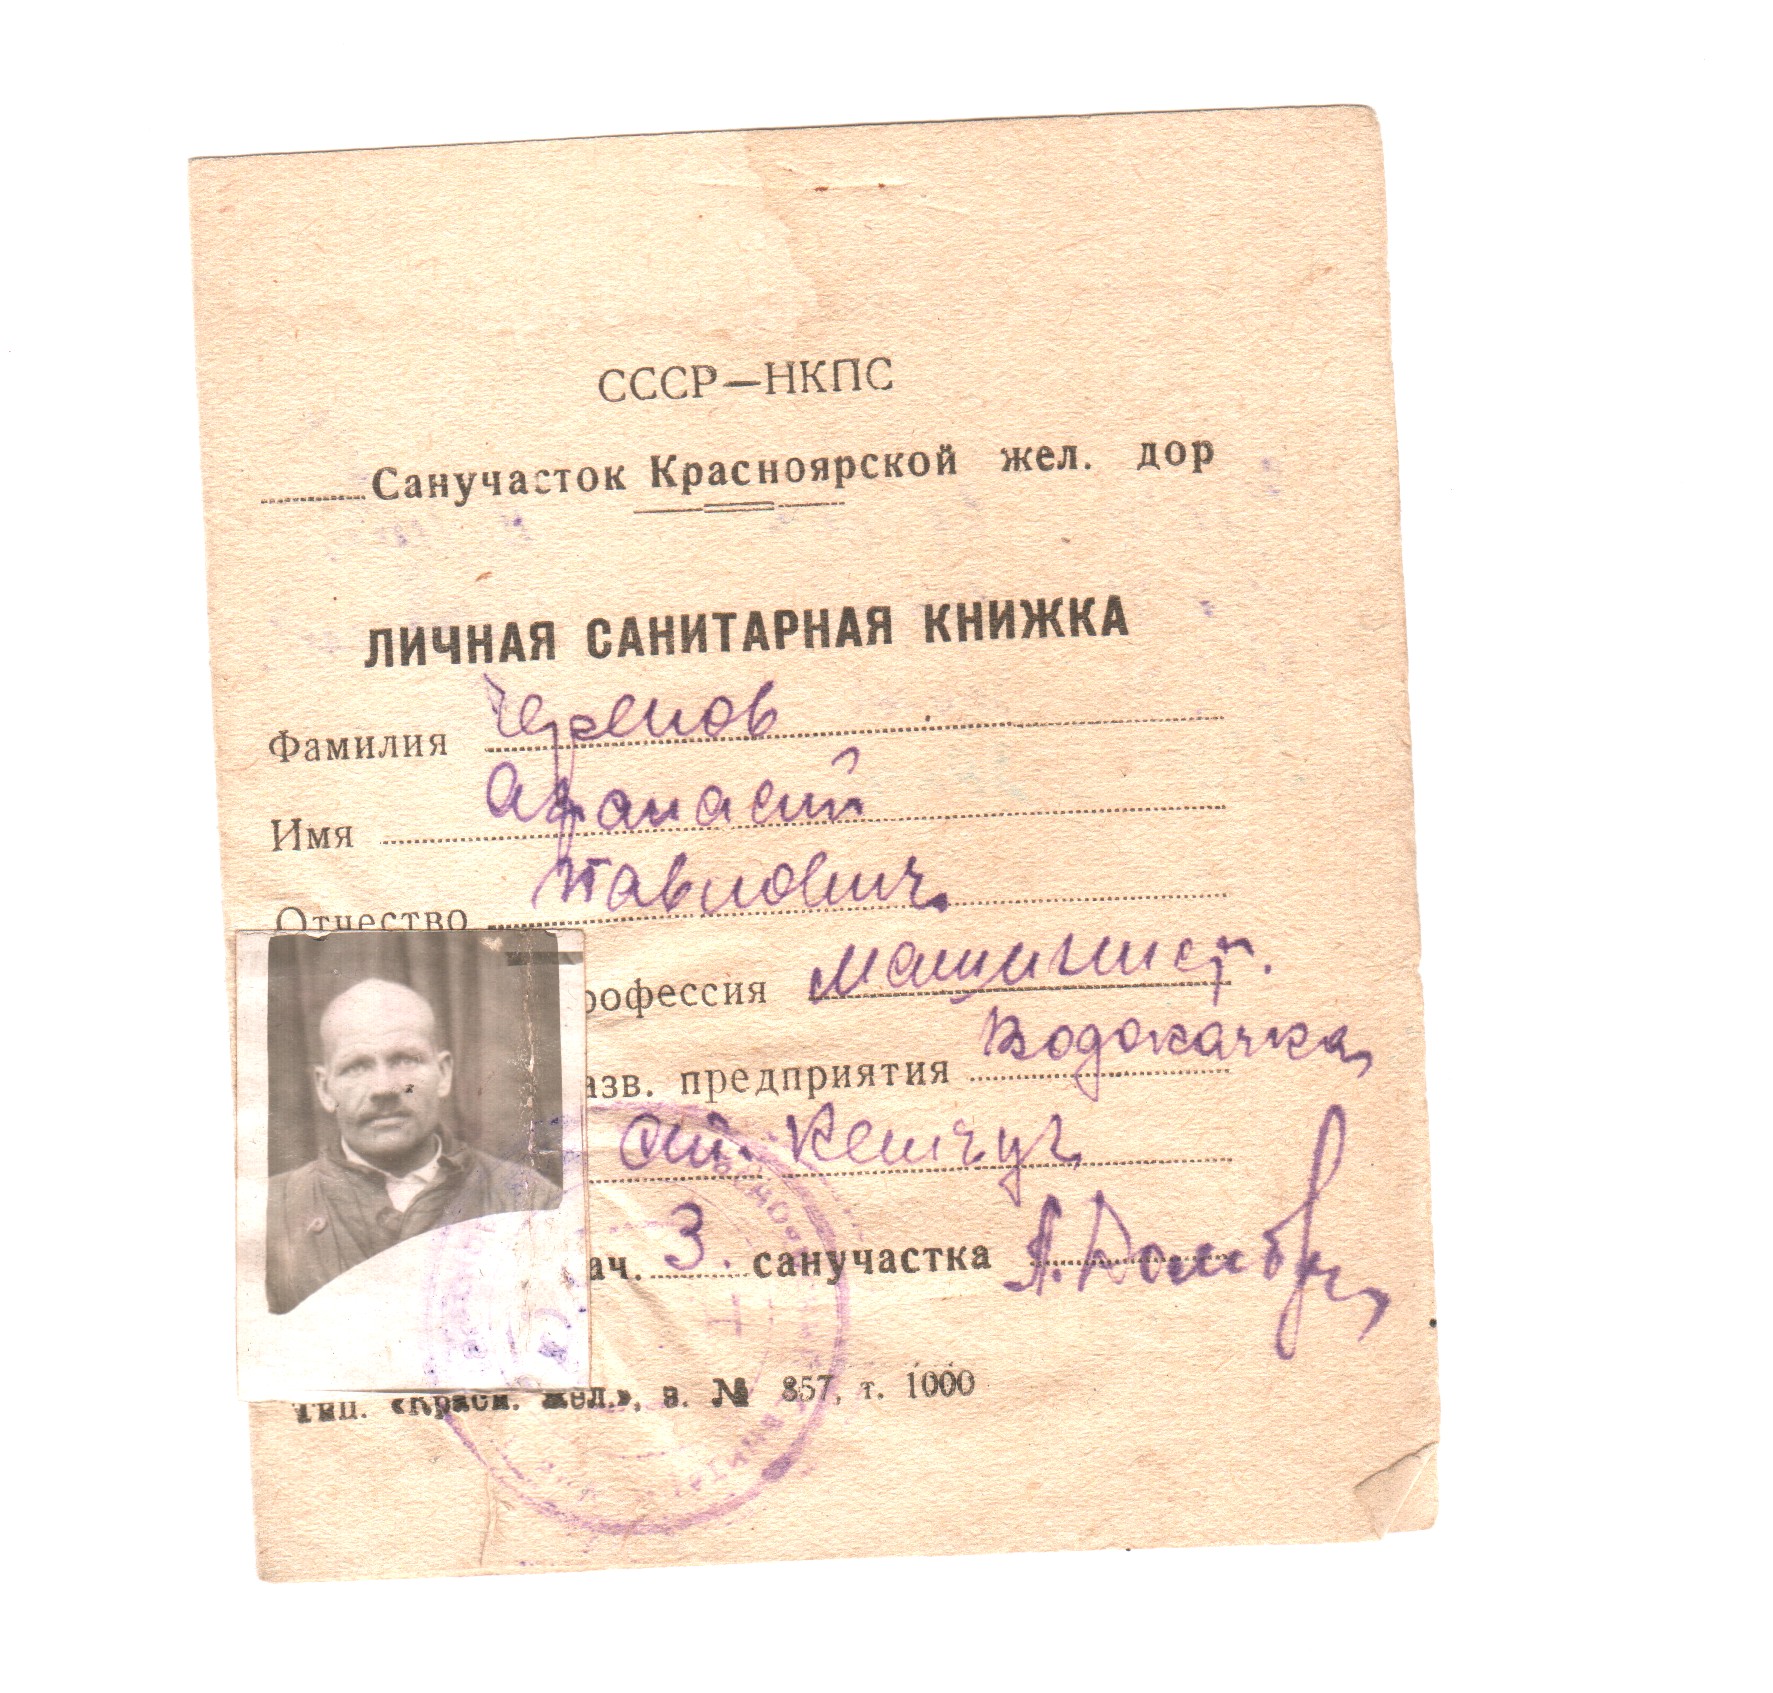 СССР—НКПС
Санучасток Красноярской жел. дор
ЛИЧНАЯ САНИТАРНАЯ КНИЖКА
Фамилия
Имя Афанасий
Отчество Павлович.
рофессия Машинист.
азв. предприятия Водокачка
ст. Кемчуг
ач. 3. санучастка
Тип. «Красн. жел.», з. № 857, т. 1000